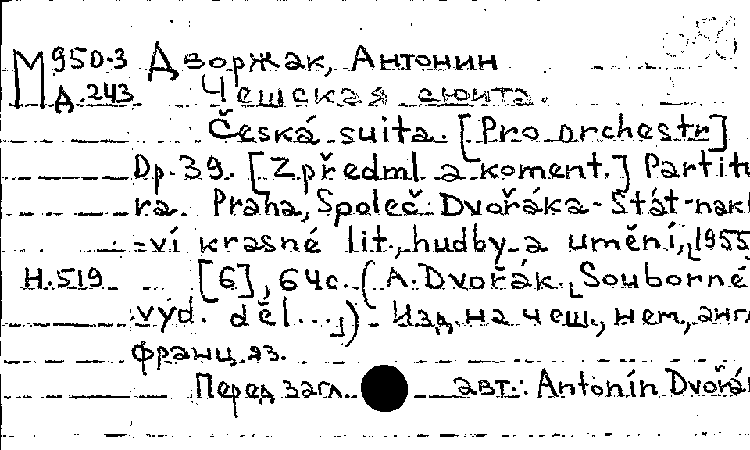 М 950-3 Дворжак, Антонин
Д.243 Чешская сюита.
Česká suita. [Pro orchestr]
Op. 39. [Z předml a koment.] Partitu
ra. Praha, Společ. Dvořáka - Stát-nakl
=ví krasné lit., hudby a umění, [1955
Н.519 [6], 64с. (A. Dvořák. [Souborné
vyd. děl...]) - Изд. на чеш., нем., англ
франц. яз.
Перед загл. авт.: Antonín Dvořá